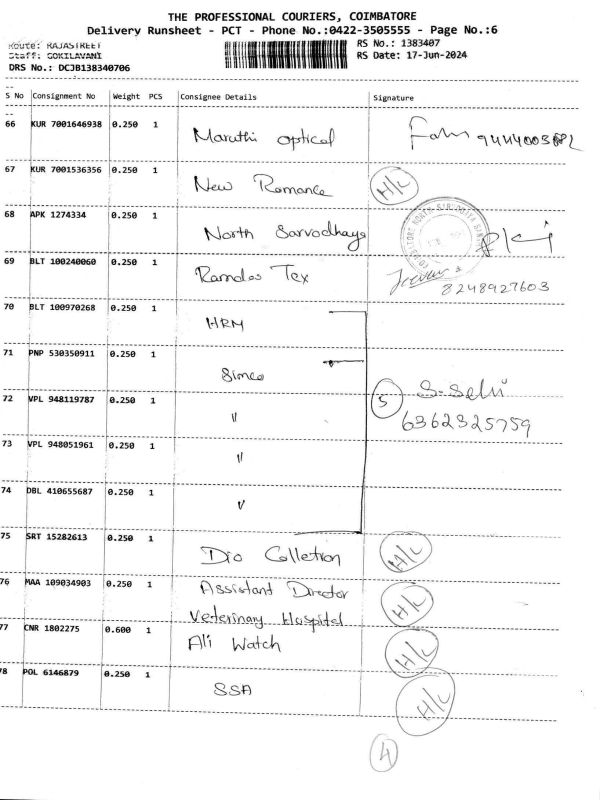 THE PROFESSIONAL COURIERS, COIMBATORE
Delivery Runsheet - PCT - Phone No.:0422-3505555 - Page No.:6
Route: RAJASTREET
Staff: GOKILAVANI
DRS No.: DCJB138340706
RS No.: 1383407
RS Date: 17-Jun-2024
S No Consignment No Weight PCS Consignee Details Signature
66 KUR 7001646938 0.250 1 Maruthi optical
67 KUR 7001536356 0.250 1 New Romance H/L
68 APK 1274334 0.250 1 North Sarvodhaya
69 BLT 100240060 0.250 1 Ramdas Tex
8248927603
70 BLT 100970268 0.250 1 HRM
71 PNP 530350911 0.250 1 Simco
72 VPL 948119787 0.250 1 " 5 S-Selvi
6362325759
73 VPL 948051961 0.250 1 "
74 DBL 410655687 0.250 1 "
75 SRT 15282613 0.250 1 Dio Colletion H/L
76 MAA 109034903 0.250 1 Assistant Director H/L
Veterinary Hospital
77 CNR 1802275 0.600 1 Ali Watch H/L
78 POL 6146879 0.250 1 SSA H/L
4